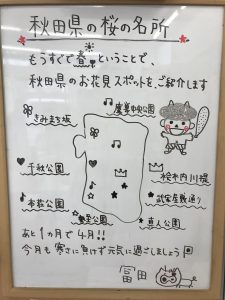 秋田県の桜の名所
もうすぐ春ということで、
秋田県のお花見スポットをご紹介します
きみまち坂
鷹巣中央公園
千秋公園
桧木内川堤
本荘公園
武家屋敷通り
勢至公園
真人公園
あと1カ月で4月!!
今月も寒さに負けず元気に過ごしましょう
冨田